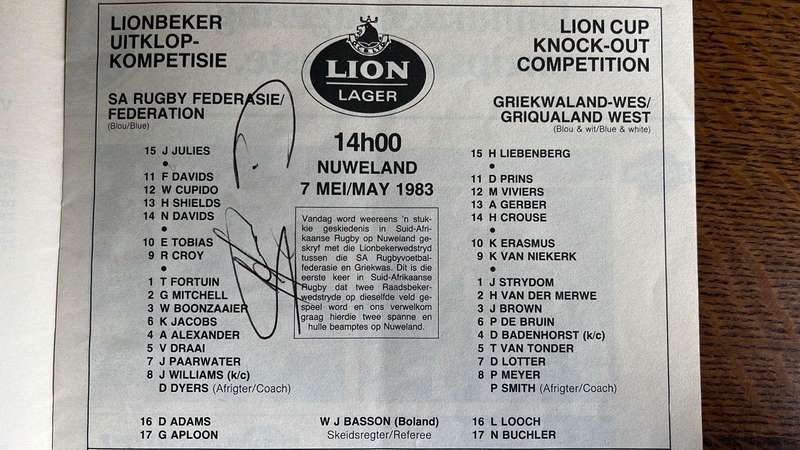 LIONBEKER
UITKLOP-
KOMPETISIE
LION
LAGER
LION CUP
KNOCK-OUT
COMPETITION
SA RUGBY FEDERASIE/
FEDERATION
(Blou/Blue)
14h00
NUWELAND
7 MEI/MAY 1983
GRIEKWALAND-WES/
GRIQUALAND WEST
(Blou & wit/Blue & white)
15 J JULIES
11 F DAVIDS
12 W CUPIDO
13 H SHIELDS
14 N DAVIDS
10 E TOBIAS
9 R CROY
1 T FORTUIN
2 G MITCHELL
3 W BOONZAAIER
6 K JACOBS
4 A ALEXANDER
5 V DRAAI
7 J PAARWATER
8 J WILLIAMS (k/c)
D DYERS (Afrigter/Coach)
16 D ADAMS
17 G APLOON
Vandag word weereens 'n stuk-
kie geskiedenis in Suid-Afri-
kaanse Rugby op Nuweland ge-
skryf met die Lionbekerwedstryd
tussen die SA Rugbyvoetbal-
federasie en Griekwas. Dit is die
eerste keer in Suid-Afrikaanse
Rugby dat twee Raadsbeker-
wedstryde op dieselfde veld ge-
speel word en ons verwelkom
graag hierdie twee spanne en
hulle beamptes op Nuweland.
W J BASSON (Boland)
Skeidsregter/Referee
15 H LIEBENBERG
11 D PRINS
12 M VIVIERS
13 A GERBER
14 H CROUSE
10 K ERASMUS
9 K VAN NIEKERK
1 J STRYDOM
2 H VAN DER MERWE
3 J BROWN
6 P DE BRUIN
4 D BADENHORST (k/c)
5 T VAN TONDER
7 D LOTTER
8 P MEYER
P SMITH (Afrigter/Coach)
16 L LOOCH
17 N BUCHLER